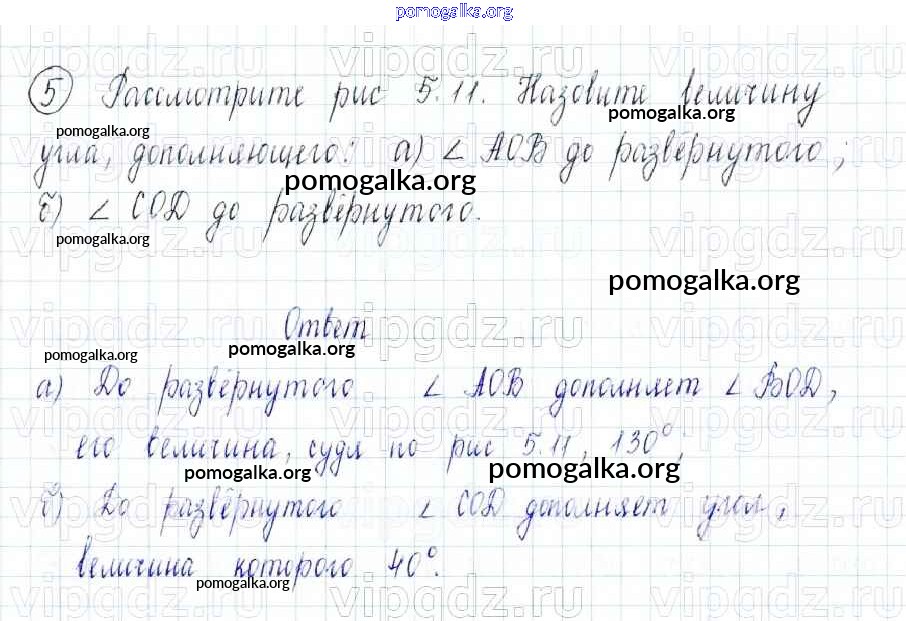 pomogalka.org
5 Рассмотрите рис 5.11. Назовите величину
pomogalka.org pomogalka.org
угла, дополняющего: а) ∠ АОВ до развёрнутого;
pomogalka.org
б) ∠ СОD до развёрнутого.
pomogalka.org
pomogalka.org
Ответ
pomogalka.org pomogalka.org
а) До развёрнутого ∠ АОВ дополняет ∠ ВОD,
его величина, судя по рис 5.11, 130°;
pomogalka.org pomogalka.org
б) До развёрнутого ∠ СОD дополняет угол,
величина которого 40°.
pomogalka.org
vipgdz.ru vipgdz.ru vipgdz.ru